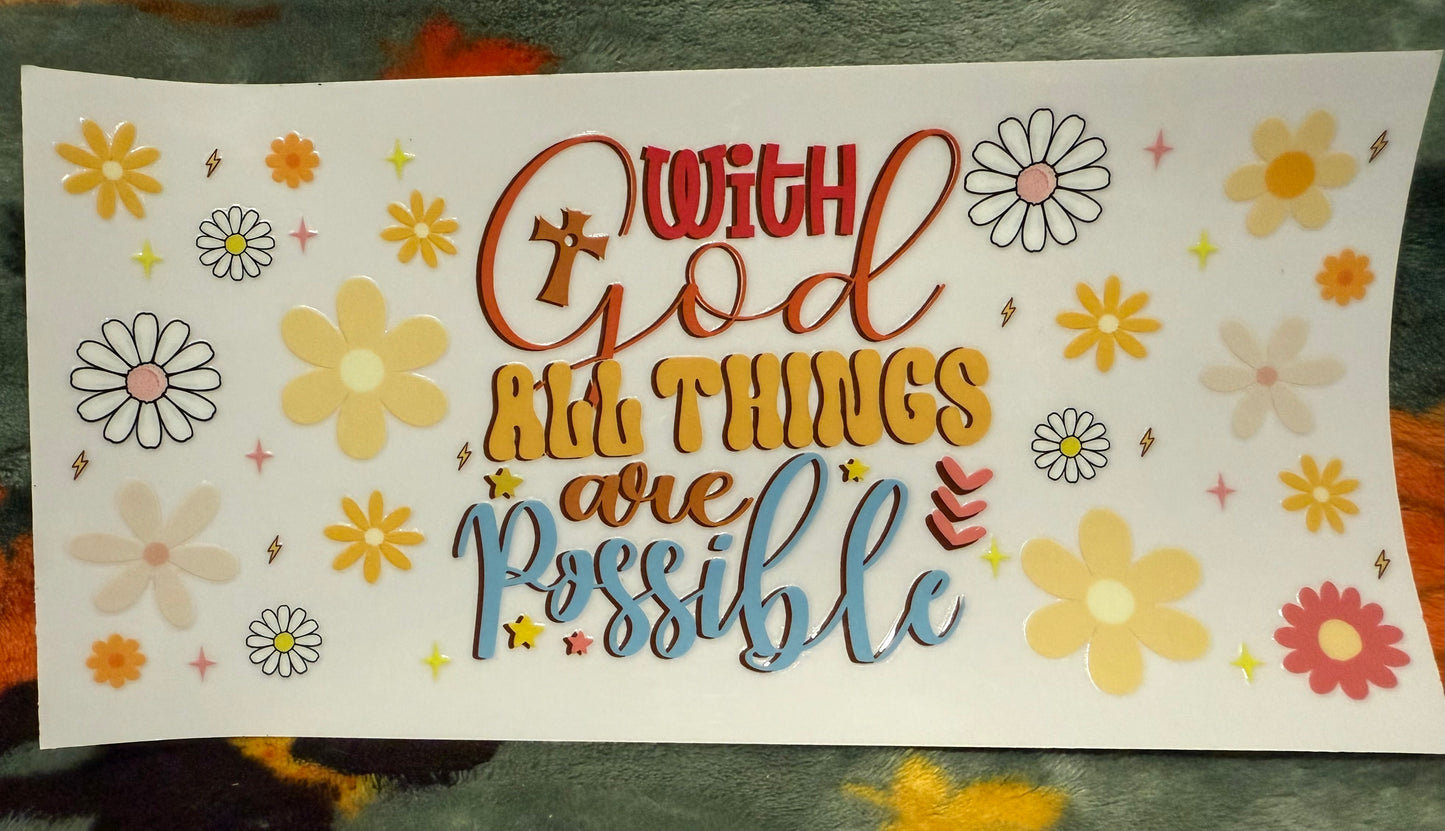 WiTH
God
ALL THINGS
are
Possible